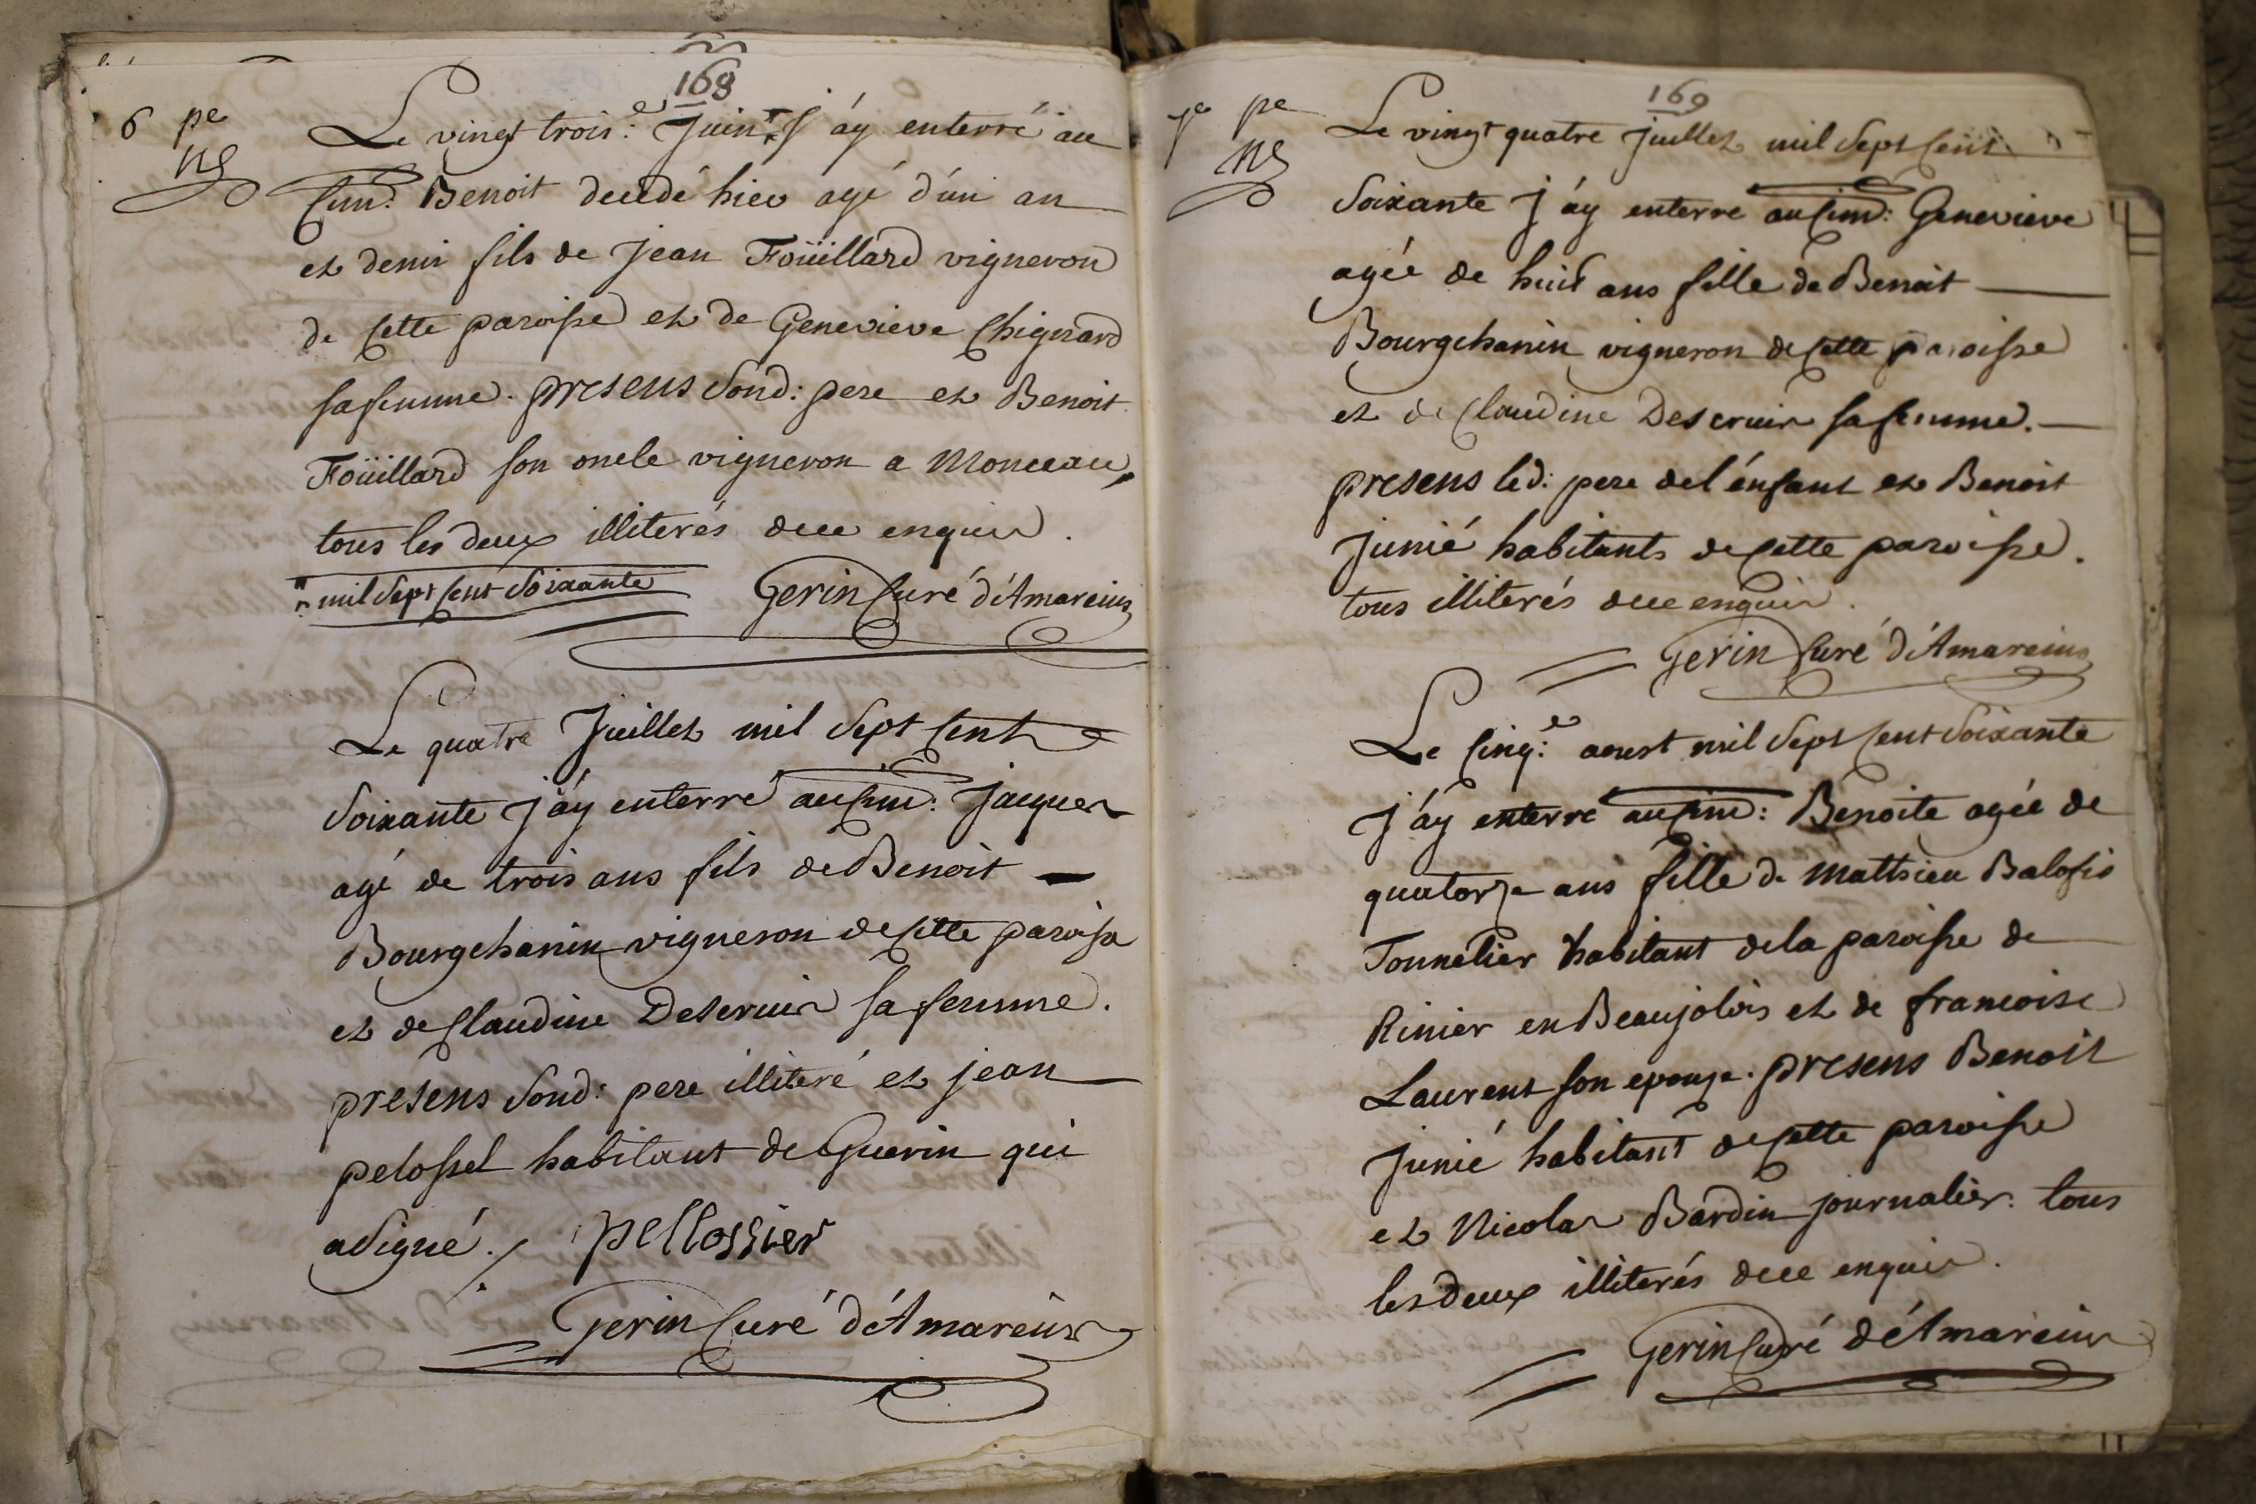 168
6 pe
Le vingt trois.e Juin j'áy enterré au
Cim.d Benoit decedé hier agé d'un an
et demi fils de Jean Foüillard vigneron
de Cette paroisse et de Genevieve Chignard
sa femme. presens Sond: pere et Benoit
Foüillard son oncle vigneron a Monceau,
tous les deux illiterés de ce enquis.
mil Sept Cent Soixante
Gerin Curé d'Amareins
Le quatre Juillet mil Sept Cent
Soixante j'áy enterré au Cim: Jacques
agé de trois ans fils de Benoit
Bourgchanin vigneron de Cette paroisse
et de Claudine Descruis sa femme.
presens Sond: pere illiteré et jean
pelossel habitant de Guerin qui
a Signé. pellossier
Gerin Curé d'Amareins
169
7e pe
Le vingt quatre Juillet mil Sept Cent
Soixante j'áy enterré au Cim: Genevieve
agée de huit ans fille de Benoit
Bourgchanin vigneron de Cette paroisse
et de Claudine Descruis sa femme.
presens led: pere de l'énfant et Benoit
Junié habitants de Cette paroisse.
tous illiterés de ce enquis.
Gerin Curé d'Amareins
Le Cinq.e aoust mil Sept Cent Soixante
j'áy enterré au Cim: Benoite agée de
quatorze ans fille de Mathieu
Tonnelier habitant de la paroisse de
Rinier en Beaujolois et de francoise
Laurent son epouze. presens Benoit
Junié habitant de Cette paroisse
et Nicolas Bardin journalier. tous
les deux illiterés de ce enquis.
Gerin Curé d'Amareins